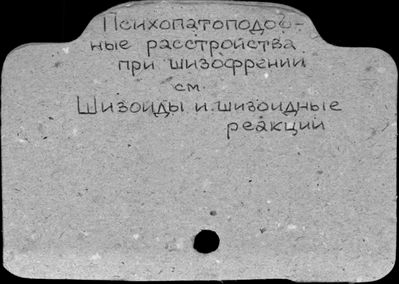 Психопатоподоб-
ные расстройства
при шизофрении
см.
Шизоиды и шизоидные
реакции